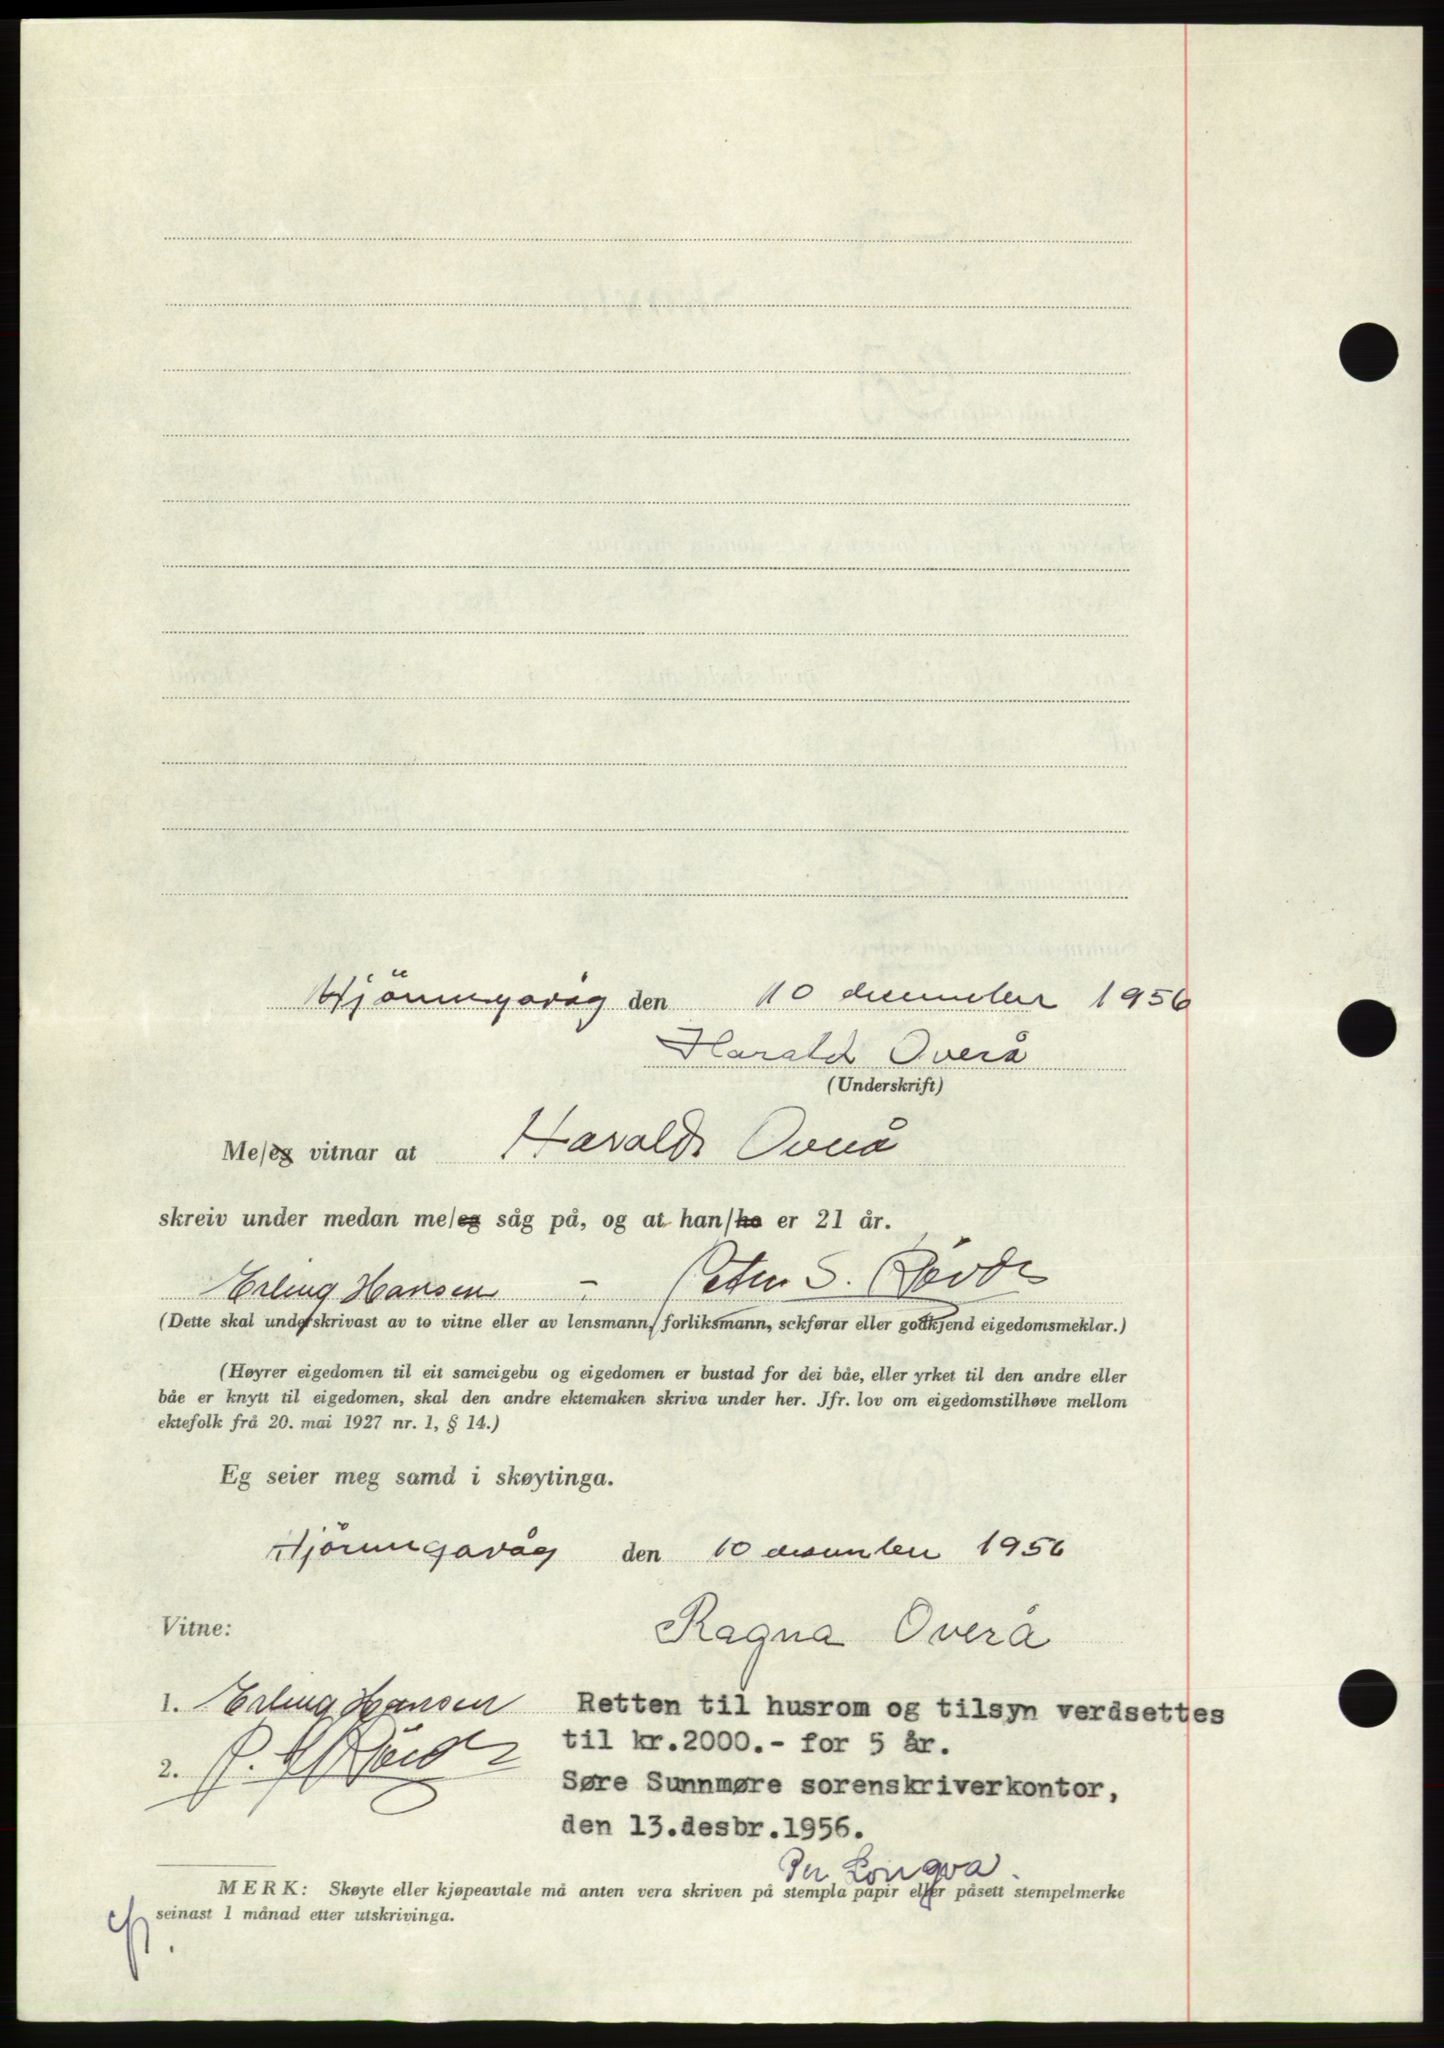 Hjörungavåg den 10 desember 1956
Harald Overå
(Underskrift)
Me/eg vitnar at Harald Overå
skreiv under medan me/eg såg på, og at han/ho er 21 år.
Erling Hansen - Peter S. Røvde
(Dette skal underskrivast av to vitne eller av lensmann, forliksmann, sckførar eller godkjend eigedomsmeklar.)
(Høyrer eigedomen til eit sameigebu og eigedomen er bustad for dei båe, eller yrket til den andre eller
båe er knytt til eigedomen, skal den andre ektemaken skriva under her. Jfr. lov om eigedomstilhøve mellom
ektefolk frå 20. mai 1927 nr. 1, § 14.)
Eg seier meg samd i skøytinga.
Hjörungavåg den 10 desember 1956
Vitne: Ragna Overå
1. Erling Hansen
2. P. S. Røvde
Retten til husrom og tilsyn verdsettes
til kr.2000.- for 5 år.
Søre Sunnmøre sorenskriverkontor,
den 13.desbr.1956.
Per Longva.
MERK: Skøyte eller kjøpeavtale må anten vera skriven på stempla papir eller påsett stempelmerke
seinast 1 månad etter utskrivinga.